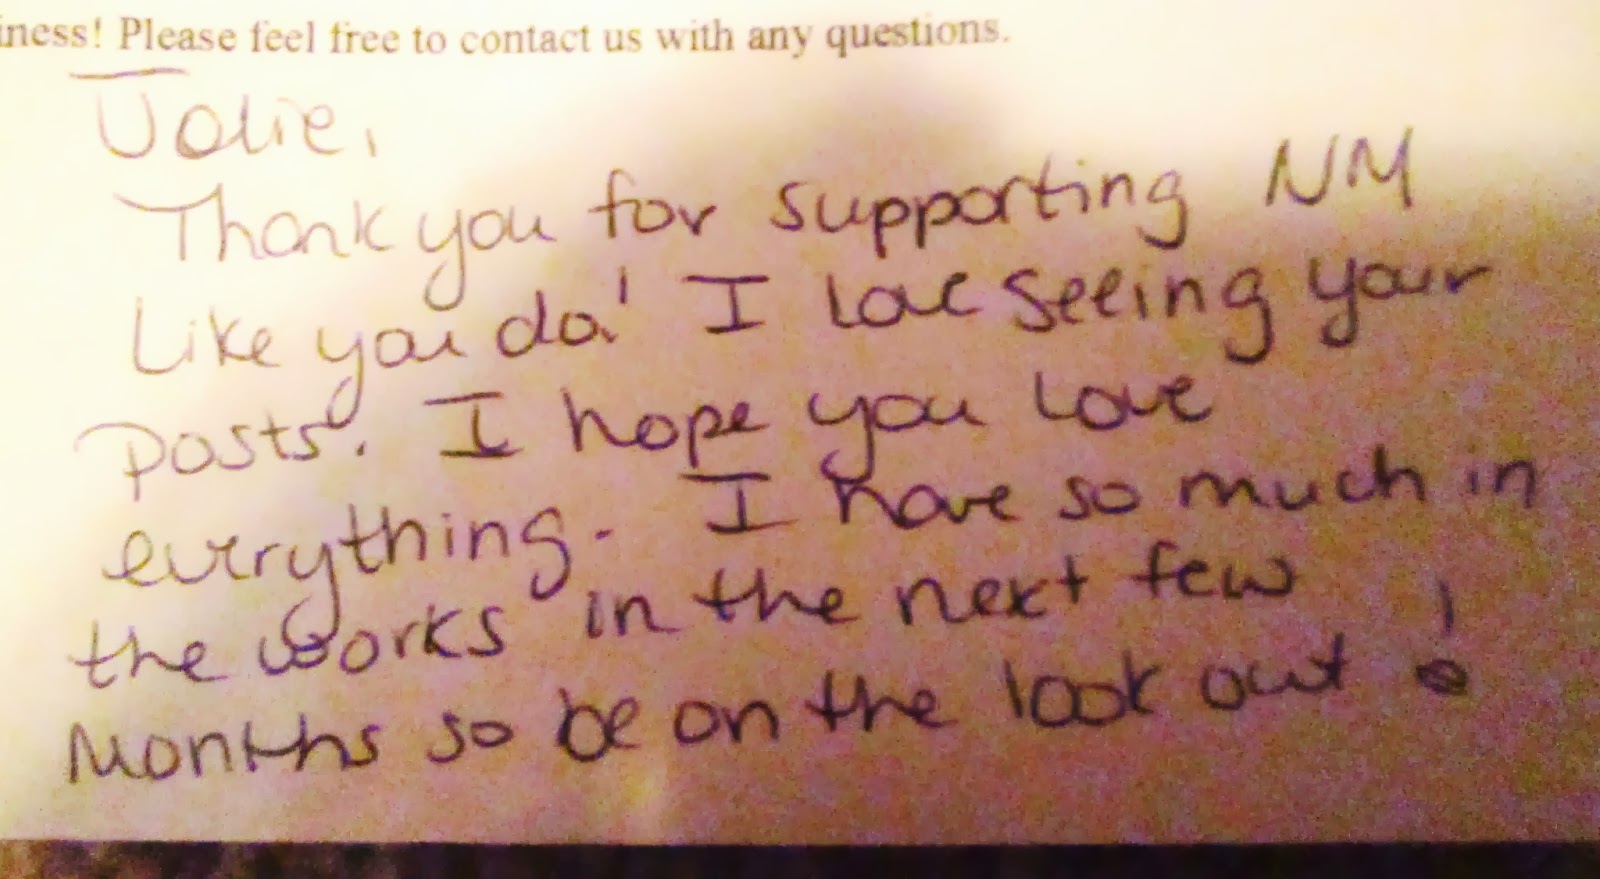 iness! Please feel free to contact us with any questions.
Jolie,
Thank you for supporting NM
Like you do! I love seeing your
posts. I hope you love
everything. I have so much in
the works in the next few
Months so be on the look out!